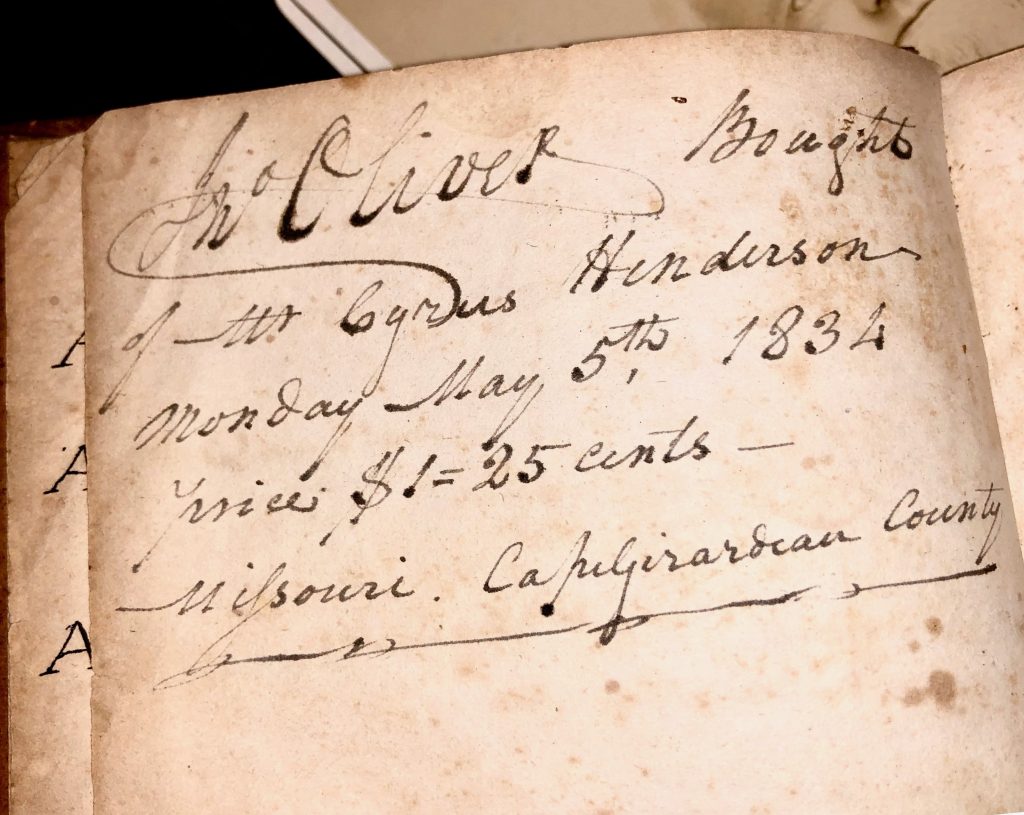 Jno Oliver Bought
of Mr Cyrus Henderson
Monday May 5th, 1834
price $1=25 cents —
Missouri. CapeGirardeau County
A
A
A